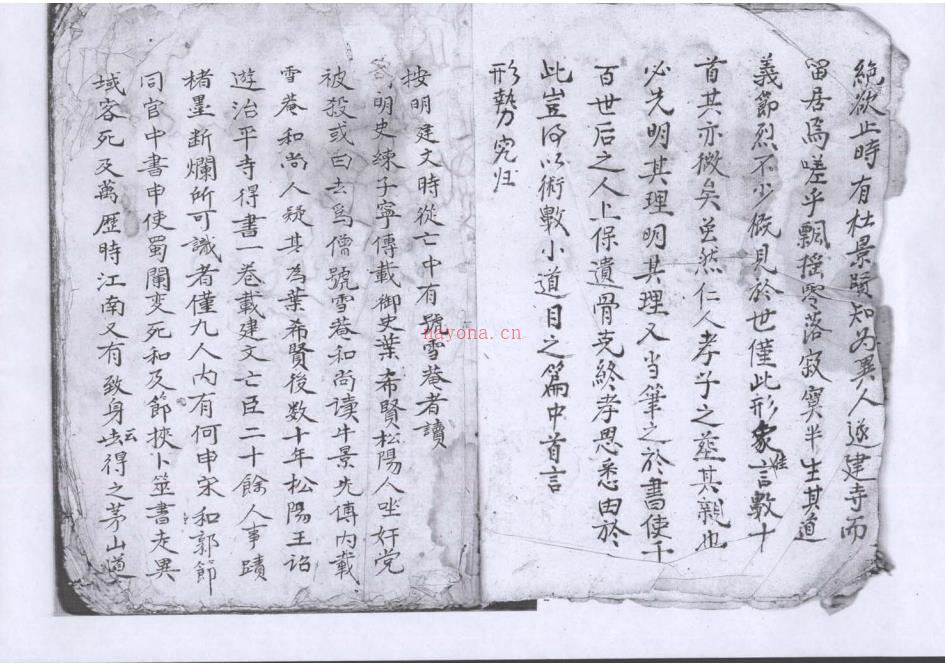 絶欲止時有杜景賢知为異人遂建寺而
留居焉嗟乎飄摇零落寂寞半生其道
義節烈不少概見於世僅此形家言數十
首其亦微矣虽然仁人孝子之葬其親也
必先明其理明其理又当筆之於書使千
百世后之人上保遺骨克終孝思悉由於
此豈得以術數小道目之篇中首言
形势究归
按明建文時從亡中有號雪菴者讀
明史練子寧傳載御史葉希賢松陽人坐奸党
被殺或曰去爲僧號雪菴和尚读牛景先傳内載
雪菴和尚人疑其為葉希賢後数十年松陽王诏
遊治平寺得書一卷載建文亡臣二十餘人事蹟
楮墨断爛所可識者僅九人内有何申宋和郭節
同官中書申使蜀闻变死和及節挾卜筮書走異
域客死及萬歷時江南又有致身云得之茅山道
nayona.cn